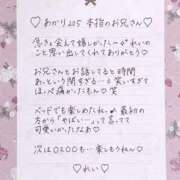 ♡あかり205 本指のお兄さん♡
急きょ会えて嬉しかったー♡れいの
こと思い出してくれてありがとう♡
お兄さんとお話してると時間
あっという間すぎる…と笑いすぎて
ほっぺ痛かったもん(笑)
ベッドでも楽しめたねー♡最初の
方から「やばい…」って言ってて
可愛いかったなあ♡
次は0600も…楽しもうねん♡
♡れい♡